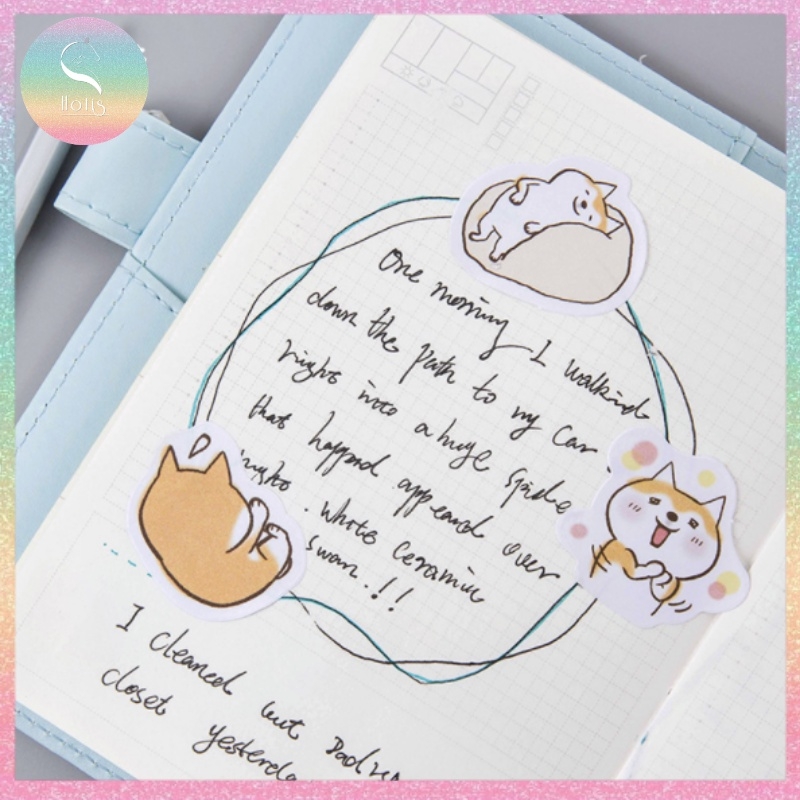 HOLIS
One morning I walkind
down the path to my car.
right into a huge spide
that happend appeard over
night. White Ceramic
swan.!!
I cleaned out
closet yesterda